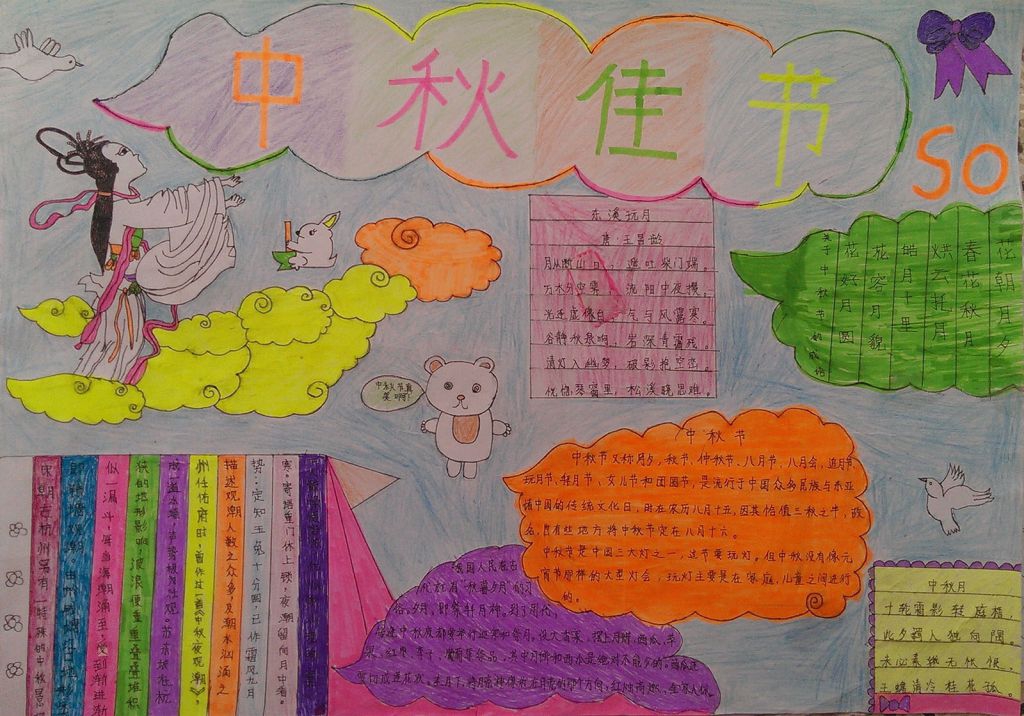 中秋佳节
SO
东溪玩月
唐·王昌龄
月从断山口，遥吐柴门端。
万木分空霁，流阴中夜攒。
光连虚象白，气与风露寒。
谷静秋泉响，岩深青霭残。
清灯入幽梦，破影抱空峦。
恍惚琴窗里，松溪晓思难。
花朝月夕
春花秋月
烘云托月
皓月千里
花容月貌
花好月圆
关于中秋节的成语
中秋节真
美啊！
中秋节
中秋节又称月夕，秋节、仲秋节、八月节、八月会，追月节、
玩月节、拜月节、女儿节和团圆节，是流行于中国众多民族与东亚
诸中国的传统文化日，时在农历八月十五，因其恰值三秋之半，故
名，也有些地方将中秋节定在八月十六。
中秋节是中国三大灯之一，这节要玩灯。但中秋没有像元
宵节那样的大型灯会，玩灯主要是在家庭，儿童之间进行
的。
我国人民在古
代就有“秋暮夕月”的习
俗。夕月，即祭拜月神。到了周代，
每逢中秋夜都要举行迎寒和祭月。设大香案，摆上月饼、西瓜、苹
果、红枣、李子、葡萄等祭品，其中月饼和西瓜是绝对不能少的。西瓜还
要切成莲花状。在月下，将月亮神像放在月亮的那个方向，红烛高燃，全家人依
中秋月
十轮霜影转庭梧，
此夕羁人独向隅。
未必素娥无怅恨，
玉蟾清冷桂花孤。
寒。寄语重门休上钥，夜潮留向月中看。
势：定知玉兔十分圆，已作霜风九月
描述观潮人数之众多，及潮水汹涌之
州任佑府时，曾作过一首《中秋夜观潮》
成一道水墙，声势极为壮观。苏东坡在杭
狭的地形影响，波浪便重重叠叠堆积
似一漏斗，海当满潮涌至，受到渐进渐
即钱塘观潮。由
宋朝，古杭州属有一特殊的中秋景